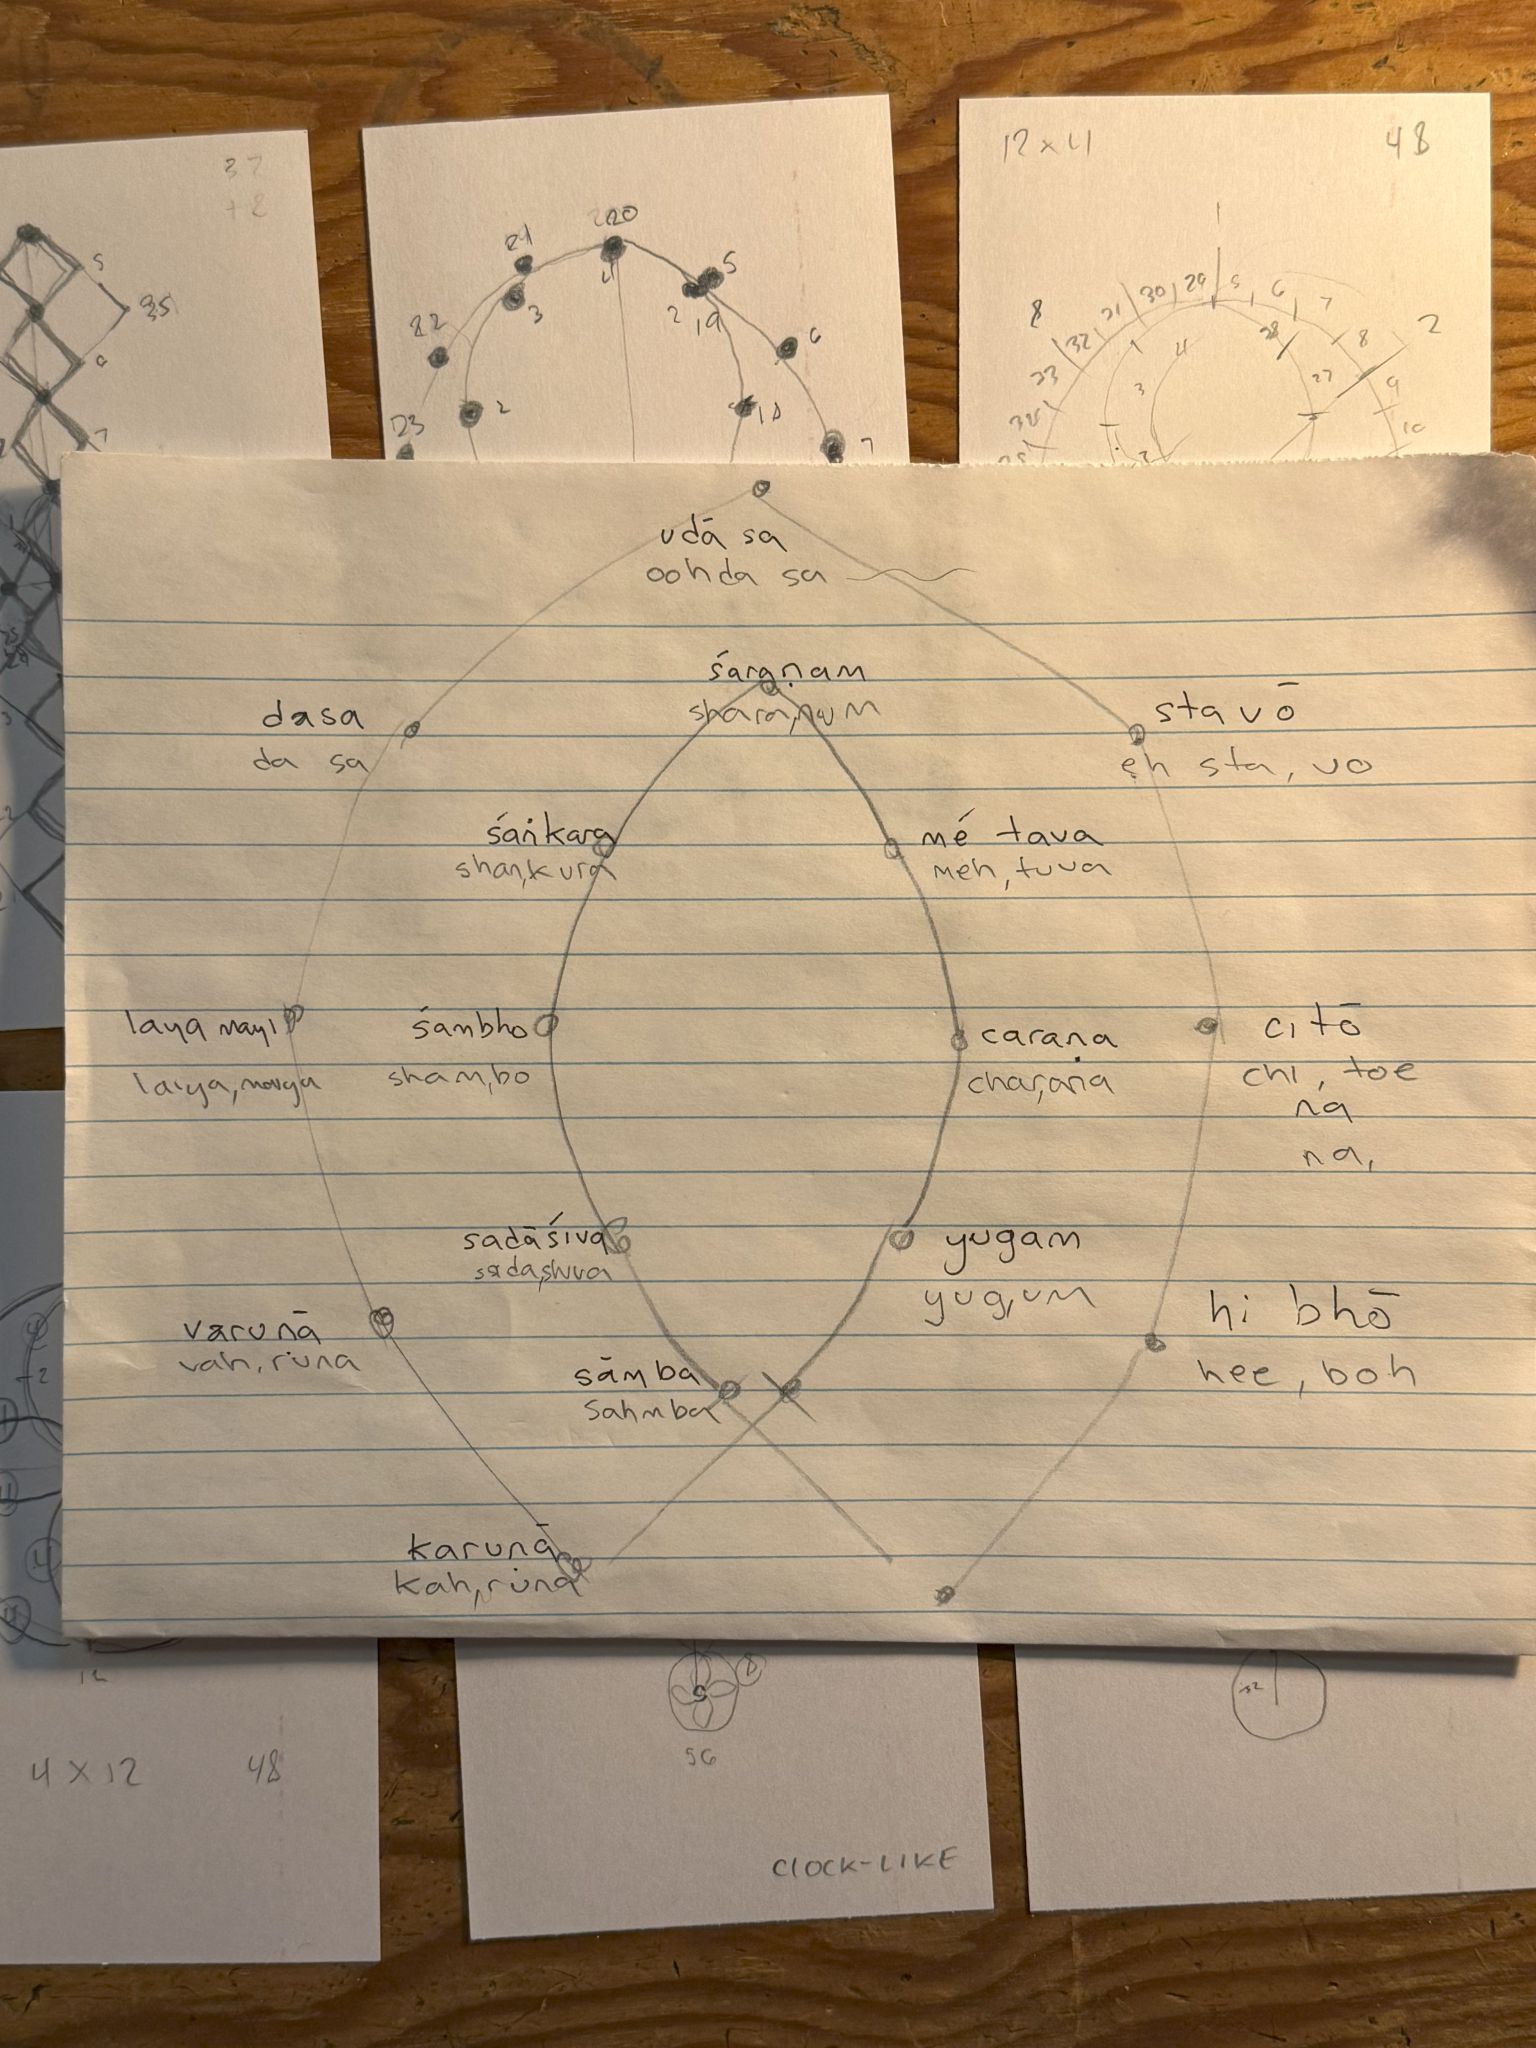 37
+2
5
35
6
7
220
21
4
5
3
2
19
22
6
2
18
23
7
12 x 4
48
1
8
31
30
29
5
6
7
2
32
28
8
33
4
3
27
9
10
2
udā sa
oohda sa
śaraṇam
dasa
da sa
stavō
eh sta, vo
śaṅkara
shan,kura
mé tava
meh, tuva
laya mayi
śambho
sham,bo
caraṇa
char,ana
ci tō
chi, toe
ná
na,
sadāśiva
sada,shiva
yugam
yug,um
varuṇā
vah, runa
hi bhō
hee, boh
sāmba
sahmba
karuṇā
kah, runa
12
4 x 12
48
8
5
56
CLOCK-LIKE